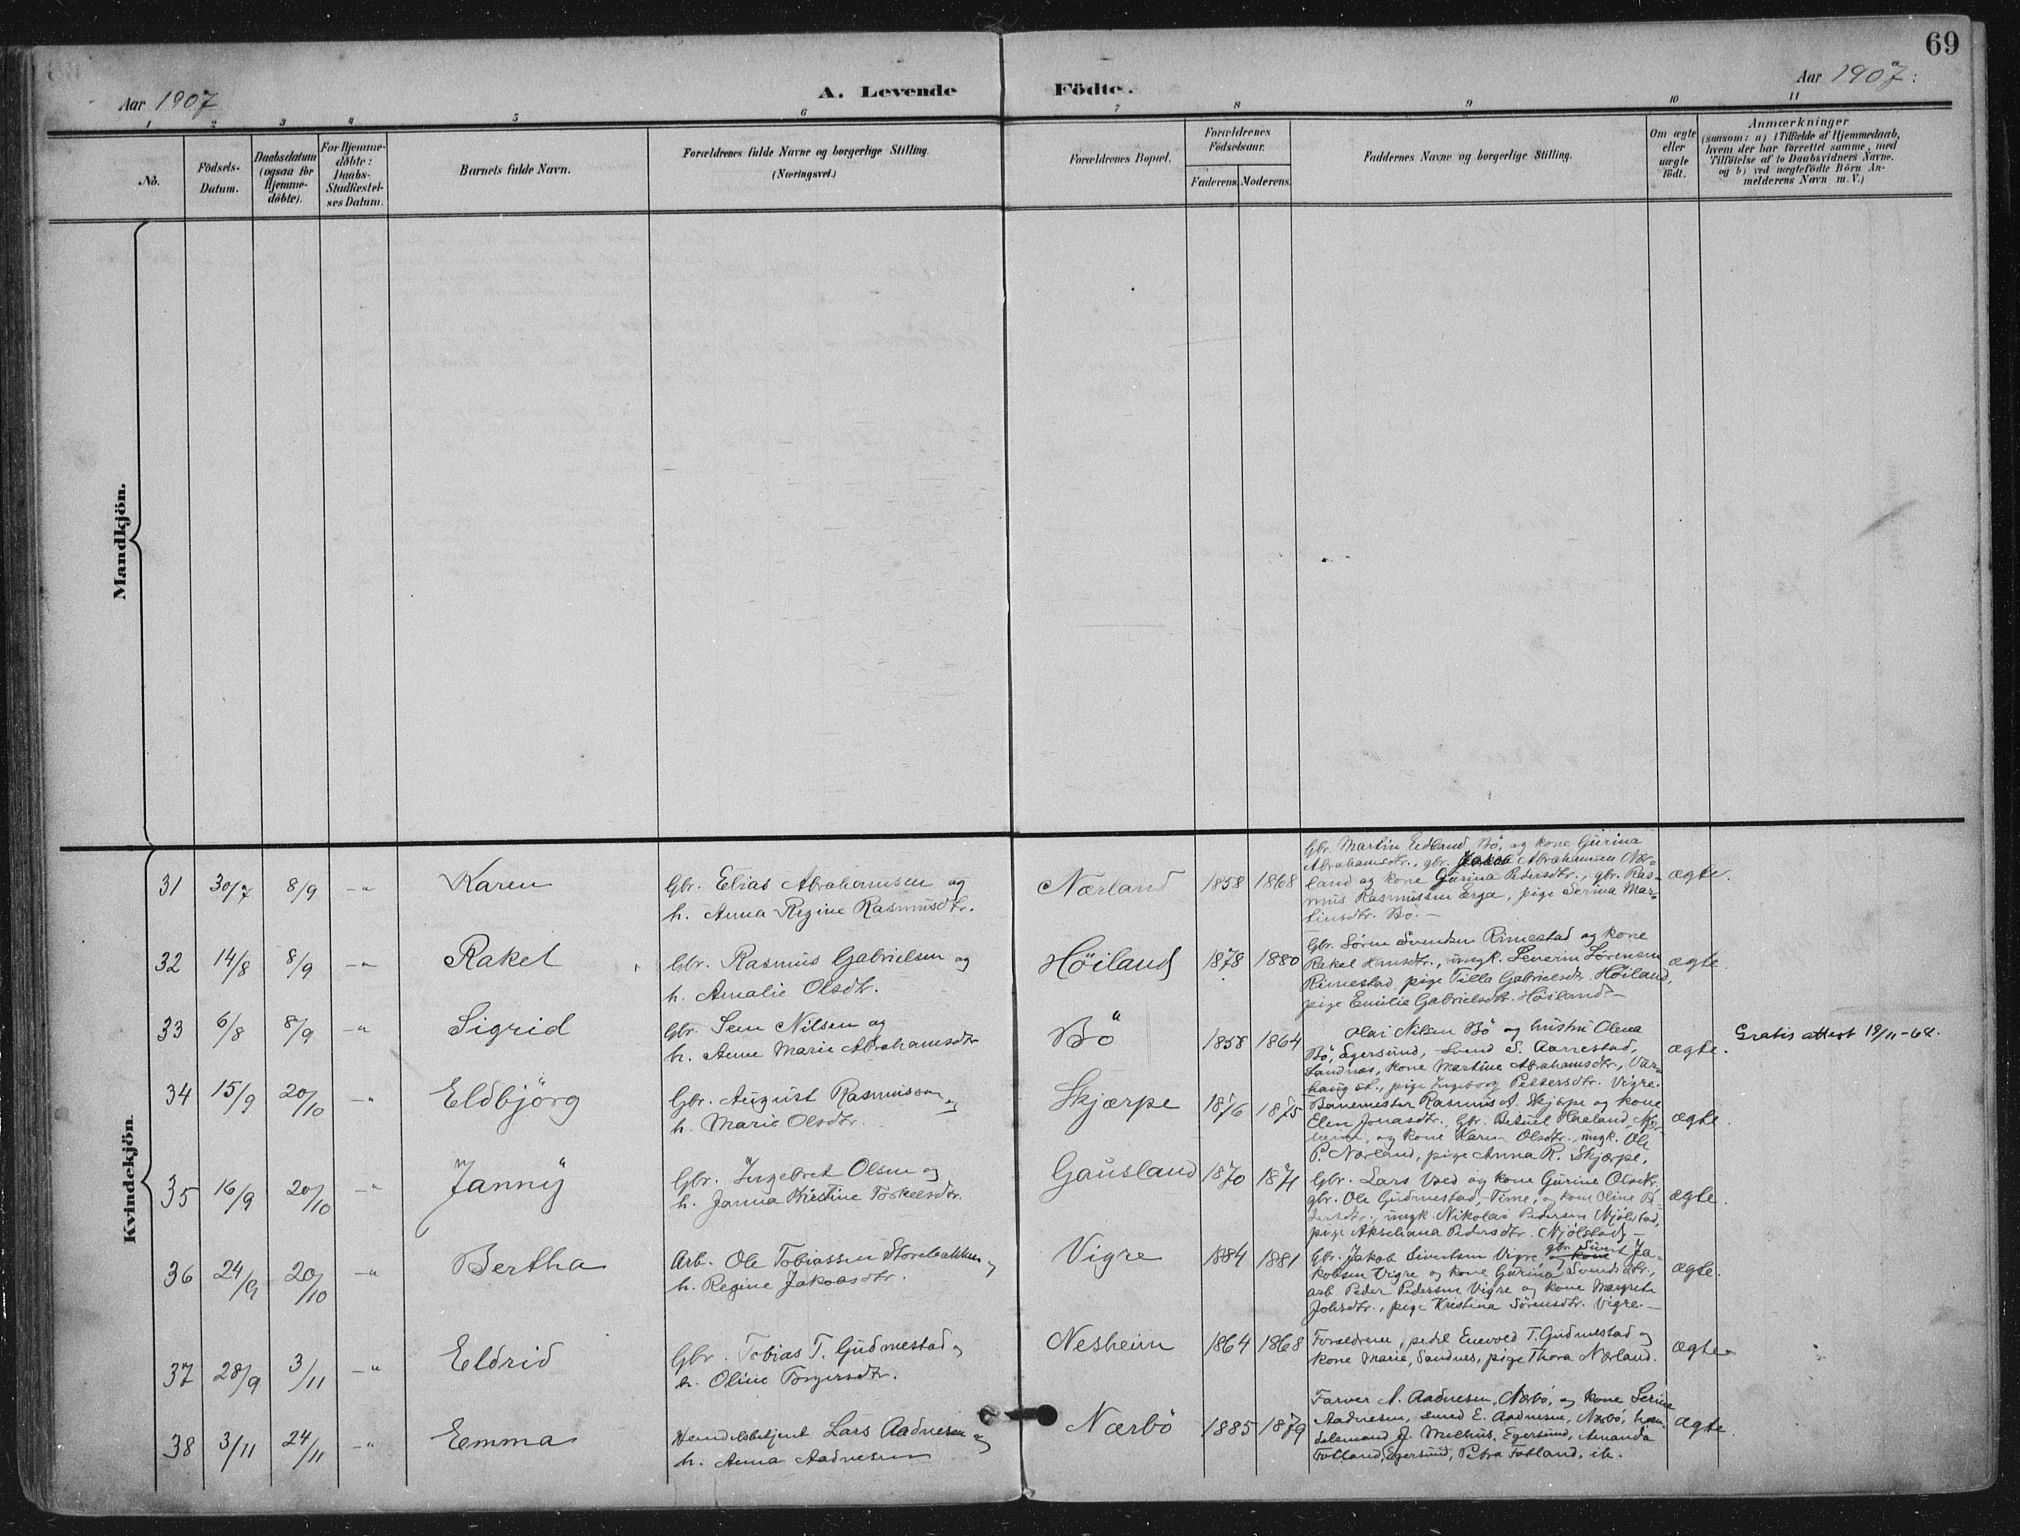 69
Aar 1907
A. Levende Födte.
Aar 1907.
1 2 3 4 5 6 7 8 9 10 11
No.
Födsels-
Datum.
Daabsdatum
(ogsaa for
Hjemme-
döbte).
For Hjemme-
döbte:
Daabs-
Stadfæstel-
ses Datum.
Barnets fulde Navn.
Forældrenes fulde Navne og borgerlige Stilling.
(Næringsvei.)
Forældrenes Bopæl.
Forældrenes
Födselsaar.
Faderens. Moderens.
Faddernes Navne og borgerlige Stilling.
Om ægte
eller
uægte
födt.
Anmærkninger
(saasom: a) i Tilfælde af Hjemmedaab,
hvem der har forrettet samme, med
Tilföielse af to Daabsvidners Navne,
og b) ved uægtefödte Börn An-
melderens Navn m. V.)
Mandkjön.
Kvindekjön.
31 30/7 8/9 -"- Karen
Gbr. Elias Abrahamsen og
h. Anna Regine Rasmusdtr.
Nærland 1858 1868
Gbr. Martin Edland Bö, og kone Gurina
Abrahamsdtr., gbr. Abrahamsen Nær-
land og kone Gurina Pedersdtr., gbr. Ras-
mus Rasmussen Erga, pige Serina Mar-
tinsdtr. Bö. -
ægte.
32 14/8 8/9 -"- Rakel
Gbr. Rasmus Gabrielsen og
h. Amalie Olsdtr.
Höiland 1878 1880
Gbr. Sören Svendsen Rimestad og kone
Rakel Hansdtr., ungk. Severin Sörensen
Rimestad, pige Tilla Gabrielsdtr. Höiland,
pige Emilie Gabrielsdtr. Höiland. -
ægte.
33 6/8 8/9 -"- Sigrid
Gbr. Sem Nilsen og
h. Anne Marie Abrahamsdtr
Bö 1858 1864
Olai Nilsen Bö og hustru Olena
Bö, Egersund, Svend S. Aarrestad,
Sandnes, kone Martine Abrahamsdtr., Var-
haug st., pige Ingeborg Pettersdtr. Vigre.
ægte.
Gratis attest 19/11-64.
34 15/9 20/10 -"- Eldbjörg
Gbr. August Rasmussen og
h. Marie Olsdtr.
Skjærpe 1876 1875
Banemester Rasmus A. Skjærpe og kone
Elen Jonasdtr., Gbr. Betuel Haaland,
og kone Karen Olsdtr. ungk. Ole
P. Nærland, pige Anna R. Skjærpe.
ægte.
35 16/9 20/10 -"- Janny
Gbr. Ingebret Olsen og
h. Janna Kirstine Torkelsdtr.
Gausland 1870 1871
Gbr. Lars og kone Gurine Olsdtr,
gbr. Ole Gudmestad, Time, og kone Oline Pe-
dersdtr., ungk. Nikolai Pedersen Njölstad,
pige Akseliana Pedersdtr. Njölstad -
ægte.
36 24/9 20/10 -"- Bertha
Arb. Ole Tobiassen Storebakken og
h. Regine Jakobsdtr.
Vigre 1884 1881
Gbr. Jakob Sivertsen Vigre, gbr. Sivert Ja-
kobsen Vigre og kone Gurina Svendsdtr.,
arb. Peder Pedersen Vigre og kone Margrete
Johsdtr., pige Kristina Sörensdtr. Vigre. -
ægte.
37 28/9 3/11 -"- Eldrid
Gbr. Tobias T. Gudmestad og
h. Oline Torgersdtr.
Nesheim 1864 1868
Forældrene, pedel Enevold T. Gudmestad og
kone Marie, Sandnes, pige Thora Nærland.
ægte
38 3/11 24/11 -"- Emma
Handelsbetjent Lars Aadnesen og
h. Anna Aadnesen
Nærbö 1885 1879
Farver A. Aadnesen, Nærbö, og kone Serine
Aadnesen, smed E. Aadnesen, Nærbö, han-
delsmand J. Melhus, Egersund, Amanda
Fotland, Egersund, Petra Fotland, ib.
ægte.